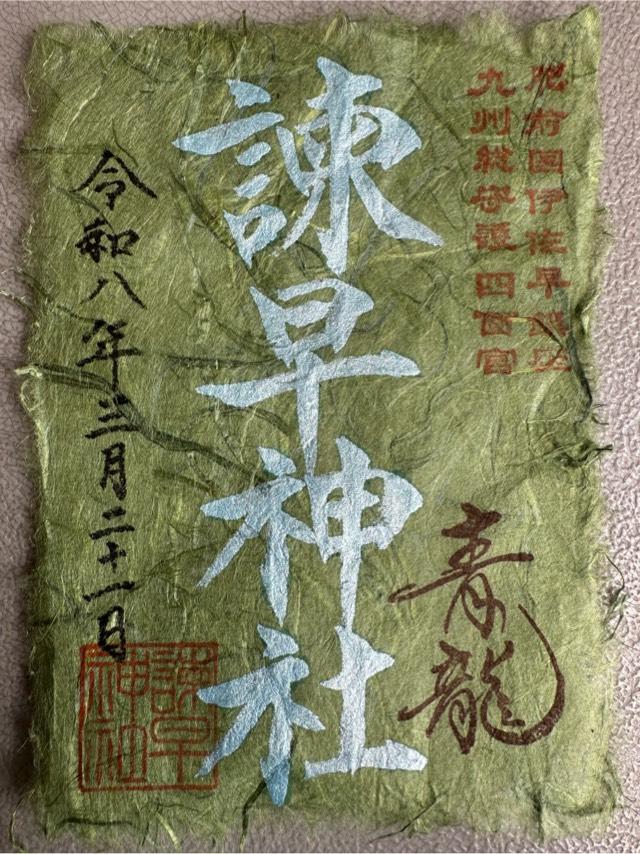 肥前国伊佐早鎮座
九州総守護四面宮
青龍
諫早神社
令和八年三月二十一日
諫早
神社